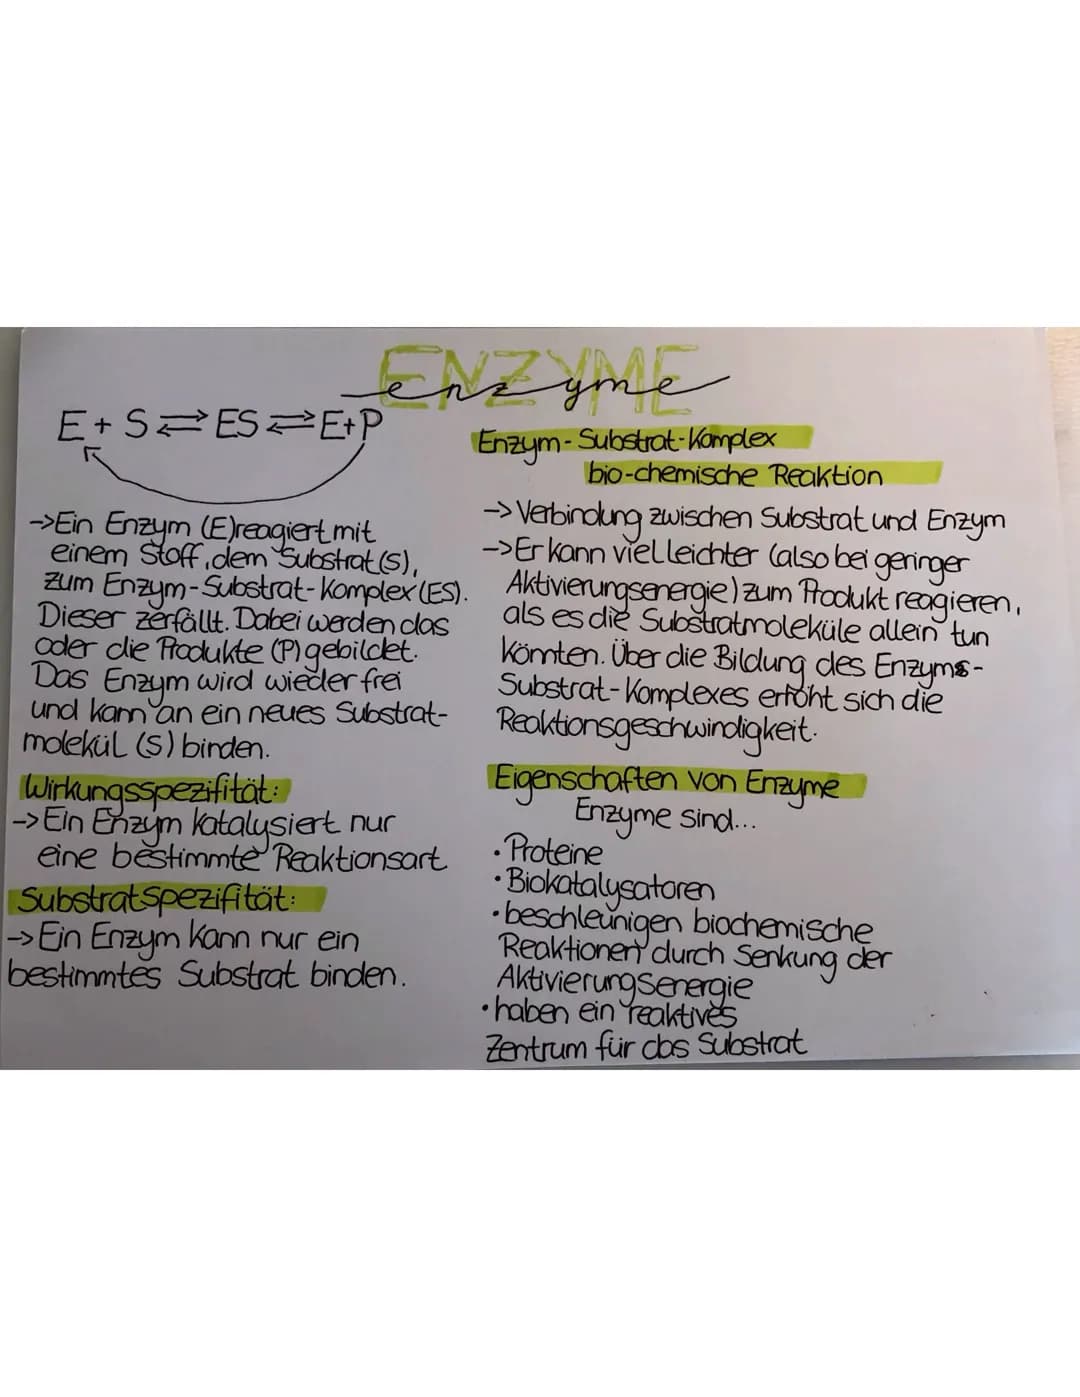 ENZYME
enzyme
E + S ⇌ ES ⇌ E+P
->Ein Enzym (E)reagiert mit
einem Stoff, dem Substrat(S),
zum Enzym-Substrat-Komplex(ES).
Dieser zerfällt. Dabei werden das
oder die Produkte (P) gebildet.
Das Enzym wird wieder frei
und kann an ein neues Substrat-
molekül (S) binden.
Wirkungsspezifität:
-> Ein Enzym katalysiert nur
eine bestimmte Reaktionsart
Substratspezifität:
-> Ein Enzym kann nur ein
bestimmtes Substrat binden.
Enzym-Substrat-Komplex
bio-chemische Reaktion
-> Verbindung zwischen Substrat und Enzym
->Er kann viel leichter (also bei geringer
Aktivierungsenergie) zum Produkt reagieren,
als es die Substratmoleküle allein tun
könnten. Über die Bildung des Enzyms-
Substrat-Komplexes erhöht sich die
Reaktionsgeschwindigkeit.
Eigenschaften von Enzyme
Enzyme sind...
• Proteine
• Biokatalysatoren
• beschleunigen biochemische
Reaktionen durch Senkung der
Aktivierungsenergie
• haben ein reaktives
Zentrum für das Substrat